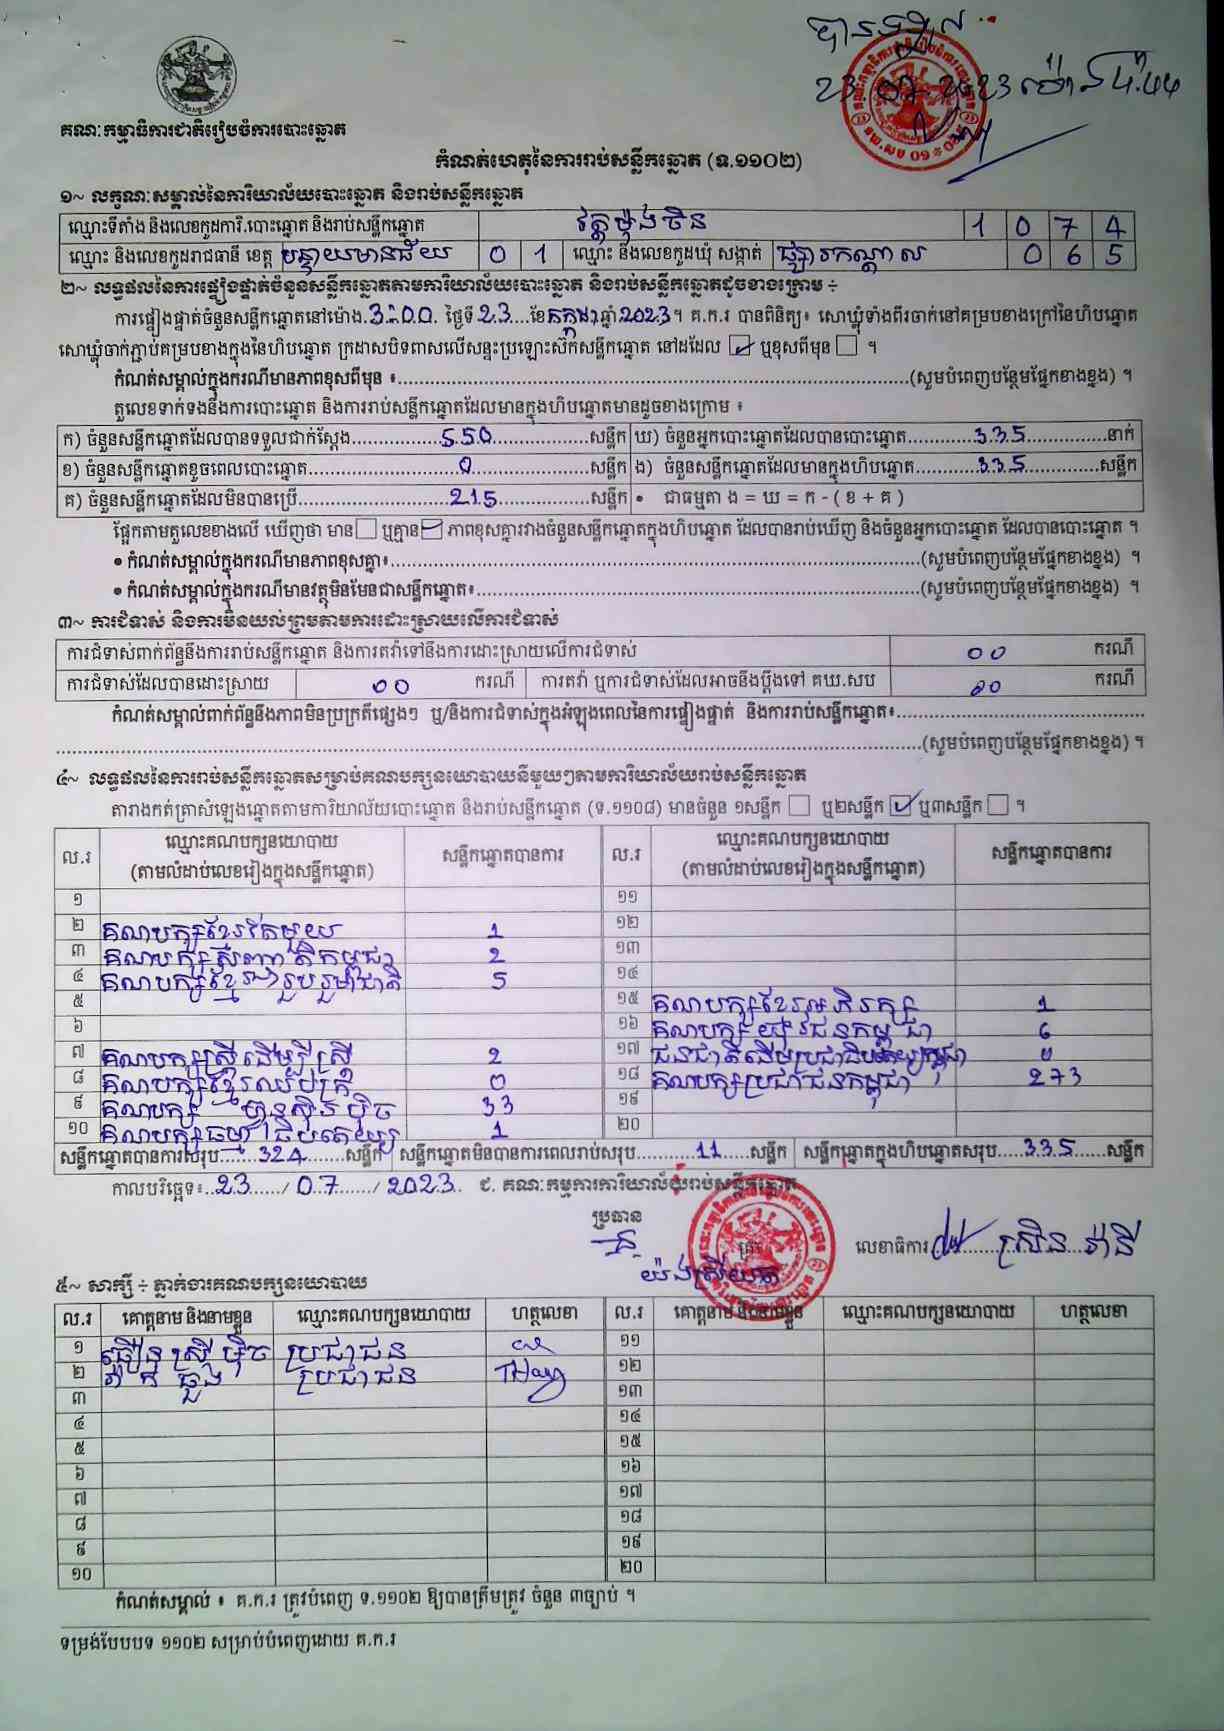 បានទទួល
23 07 2023 ម៉ោង ៤:៤៤
គណៈកម្មាធិការជាតិរៀបចំការបោះឆ្នោត
កំណត់ហេតុនៃការរាប់សន្លឹកឆ្នោត (ទ.១១០២)
១~ លក្ខណៈសម្គាល់នៃការិយាល័យបោះឆ្នោត និងរាប់សន្លឹកឆ្នោត
ឈ្មោះទីតាំង និងលេខកូដការិ.បោះឆ្នោត និងរាប់សន្លឹកឆ្នោត វត្តម៉ុងចិន 1 0 7 4
ឈ្មោះ និងលេខកូដរាជធានី ខេត្ត បន្ទាយមានជ័យ 0 1 ឈ្មោះ និងលេខកូដឃុំ សង្កាត់ ផ្សារកណ្ដាល 0 6 5
២~ លទ្ធផលនៃការផ្ទៀងផ្ទាត់ចំនួនសន្លឹកឆ្នោតតាមការិយាល័យបោះឆ្នោត និងរាប់សន្លឹកឆ្នោតដូចខាងក្រោម ÷
ការផ្ទៀងផ្ទាត់ចំនួនសន្លឹកឆ្នោតនៅម៉ោង.3:00. ថ្ងៃទី23....ខែកក្កដាឆ្នាំ2023។ គ.ក.រ បានពិនិត្យ៖ សោឃ្លុំទាំងពីរចាក់នៅគម្របខាងក្រៅនៃហិបឆ្នោត
សោឃ្លុំចាក់ភ្ជាប់គម្របខាងក្នុងនៃហិបឆ្នោត ក្រដាសបិទពាសលើសន្ទះប្រឡោះស៊កសន្លឹកឆ្នោត នៅដដែល ឬខុសពីមុន ។
កំណត់សម្គាល់ក្នុងករណីមានភាពខុសពីមុន ៖......(សូមបំពេញបន្ថែមផ្នែកខាងខ្នង) ។
តួលេខទាក់ទងនឹងការបោះឆ្នោត និងការរាប់សន្លឹកឆ្នោតដែលមានក្នុងហិបឆ្នោតមានដូចខាងក្រោម ៖
ក) ចំនួនសន្លឹកឆ្នោតដែលបានទទួលជាក់ស្ដែង......550......សន្លឹក ឃ) ចំនួនអ្នកបោះឆ្នោតដែលបានបោះឆ្នោត......335......នាក់
ខ) ចំនួនសន្លឹកឆ្នោតខូចពេលបោះឆ្នោត......0......សន្លឹក ង) ចំនួនសន្លឹកឆ្នោតដែលមានក្នុងហិបឆ្នោត......335......សន្លឹក
គ) ចំនួនសន្លឹកឆ្នោតដែលមិនបានប្រើ......215......សន្លឹក • ជាធម្មតា ង = ឃ = ក - ( ខ + គ )
ផ្អែកតាមតួលេខខាងលើ ឃើញថា មាន ឬគ្មាន ភាពខុសគ្នារវាងចំនួនសន្លឹកឆ្នោតក្នុងហិបឆ្នោត ដែលបានរាប់ឃើញ និងចំនួនអ្នកបោះឆ្នោត ដែលបានបោះឆ្នោត ។
• កំណត់សម្គាល់ក្នុងករណីមានភាពខុសគ្នា៖......(សូមបំពេញបន្ថែមផ្នែកខាងខ្នង) ។
• កំណត់សម្គាល់ក្នុងករណីមានវត្ថុមិនមែនជាសន្លឹកឆ្នោត៖......(សូមបំពេញបន្ថែមផ្នែកខាងខ្នង) ។
៣~ ការជំទាស់ និងការមិនយល់ព្រមតាមការដោះស្រាយលើការជំទាស់
ការជំទាស់ពាក់ព័ន្ធនឹងការរាប់សន្លឹកឆ្នោត និងការតវ៉ាទៅនឹងការដោះស្រាយលើការជំទាស់ 00 ករណី
ការជំទាស់ដែលបានដោះស្រាយ 00 ករណី ការតវ៉ា ឬការជំទាស់ដែលអាចនឹងប្ដឹងទៅ គឃ.សប 00 ករណី
កំណត់សម្គាល់ពាក់ព័ន្ធនឹងភាពមិនប្រក្រតីផ្សេងៗ ឬ/និងការជំទាស់ក្នុងអំឡុងពេលនៃការផ្ទៀងផ្ទាត់ និងការរាប់សន្លឹកឆ្នោត៖......
......(សូមបំពេញបន្ថែមផ្នែកខាងខ្នង) ។
៤~ លទ្ធផលនៃការរាប់សន្លឹកឆ្នោតសម្រាប់គណបក្សនយោបាយនីមួយៗតាមការិយាល័យរាប់សន្លឹកឆ្នោត
តារាងកត់ត្រាសំឡេងឆ្នោតតាមការិយាល័យបោះឆ្នោត និងរាប់សន្លឹកឆ្នោត (ទ.១១០៨) មានចំនួន ១សន្លឹក ឬ២សន្លឹក ឬ៣សន្លឹក ។
ល.រ ឈ្មោះគណបក្សនយោបាយ (តាមលំដាប់លេខរៀងក្នុងសន្លឹកឆ្នោត) សន្លឹកឆ្នោតបានការ ល.រ ឈ្មោះគណបក្សនយោបាយ (តាមលំដាប់លេខរៀងក្នុងសន្លឹកឆ្នោត) សន្លឹកឆ្នោតបានការ
១ ១១
២ គណបក្សខ្មែរតែមួយ 1 ១២
៣ គណបក្សសញ្ជាតិកម្ពុជា 2 ១៣
៤ គណបក្សខ្មែររួបរួមជាតិ 5 ១៤
៥ ១៥ គណបក្សខ្មែរអភិរក្ស 1
៦ ១៦ គណបក្សយុវជនកម្ពុជា 6
៧ គណបក្សស្ត្រីដើម្បីស្ត្រី 2 ១៧ ជនជាតិដើមប្រជាធិបតេយ្យកម្ពុជា 0
៨ គណបក្សខ្មែរឈប់ក្រ 0 ១៨ គណបក្សប្រជាជនកម្ពុជា 273
៩ គណបក្ស ហ៊្វុនស៊ិនប៉ិច 33 ១៩
១០ គណបក្សធម្មាធិបតេយ្យ 1 ២០
សន្លឹកឆ្នោតបានការសរុប......324......សន្លឹក សន្លឹកឆ្នោតមិនបានការពេលរាប់សរុប......11......សន្លឹក សន្លឹកឆ្នោតក្នុងហិបឆ្នោតសរុប.....335......សន្លឹក
កាលបរិច្ឆេទ៖..23....../ 07....../ 2023. ជ. គណៈកម្មការការិយាល័យរាប់សន្លឹកឆ្នោត
ប្រធាន
លេខាធិការ ស្រិន វ៉ានី
យ៉ង់ស្រីយុត
៥~ សាក្សី ÷ ភ្នាក់ងារគណបក្សនយោបាយ
ល.រ គោត្តនាម និងនាមខ្លួន ឈ្មោះគណបក្សនយោបាយ ហត្ថលេខា ល.រ គោត្តនាម និងនាមខ្លួន ឈ្មោះគណបក្សនយោបាយ ហត្ថលេខា
១ ធឿន ស្រីម៉ិច ប្រជាជន ១១
២ ប្រជាជន ១២
៣ ១៣
៤ ១៤
៥ ១៥
៦ ១៦
៧ ១៧
៨ ១៨
៩ ១៩
១០ ២០
កំណត់សម្គាល់ ៖ គ.ក.រ ត្រូវបំពេញ ទ.១១០២ ឱ្យបានត្រឹមត្រូវ ចំនួន ៣ច្បាប់ ។
ទម្រង់បែបបទ ១១០២ សម្រាប់បំពេញដោយ គ.ក.រ